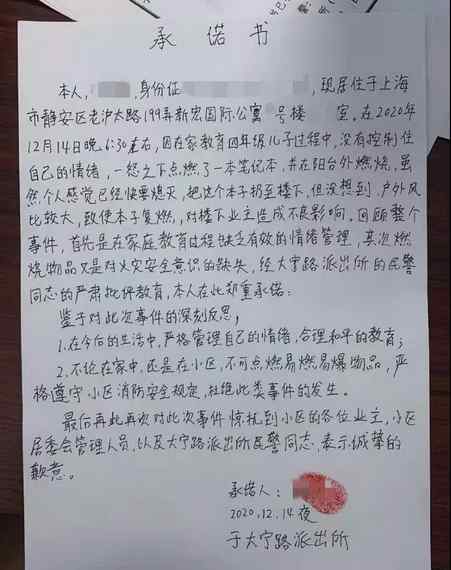 承诺书
本人,身份证,现居住于上海
市静安区老沪太路199弄新宏国际公寓号楼室。在2020年
12月14日晚6:30左右,因在家教育四年级儿子过程中,没有控制住
自己的情绪,一怒之下点燃了一本笔记本,并在阳台外燃烧。虽
然个人感觉已经快要熄灭,把这个本子扔至楼下,但没想到,户外风
比较大,致使本子复燃,对楼下业主造成不良影响。回顾整个
事件,首先是在家庭教育过程缺乏有效的情绪管理,其次燃
烧物品又是对火灾安全意识的缺失,经大宁路派出所的民警
同志的严肃批评教育,本人在此郑重承诺:
鉴于对此次事件的深刻反思;
1.在今后的生活中,严格管理自己的情绪,合理和平的教育;
2.不论在家中,还是在小区,不可点燃易燃易爆物品,严
格遵守小区消防安全规定,杜绝此类事件的发生。
最后再此再次对此次事件惊扰到小区的各位业主,小区
居委会管理人员,以及大宁路派出所民警同志,表示诚挚的
歉意。
承诺人:
2020.12.14夜
于大宁路派出所